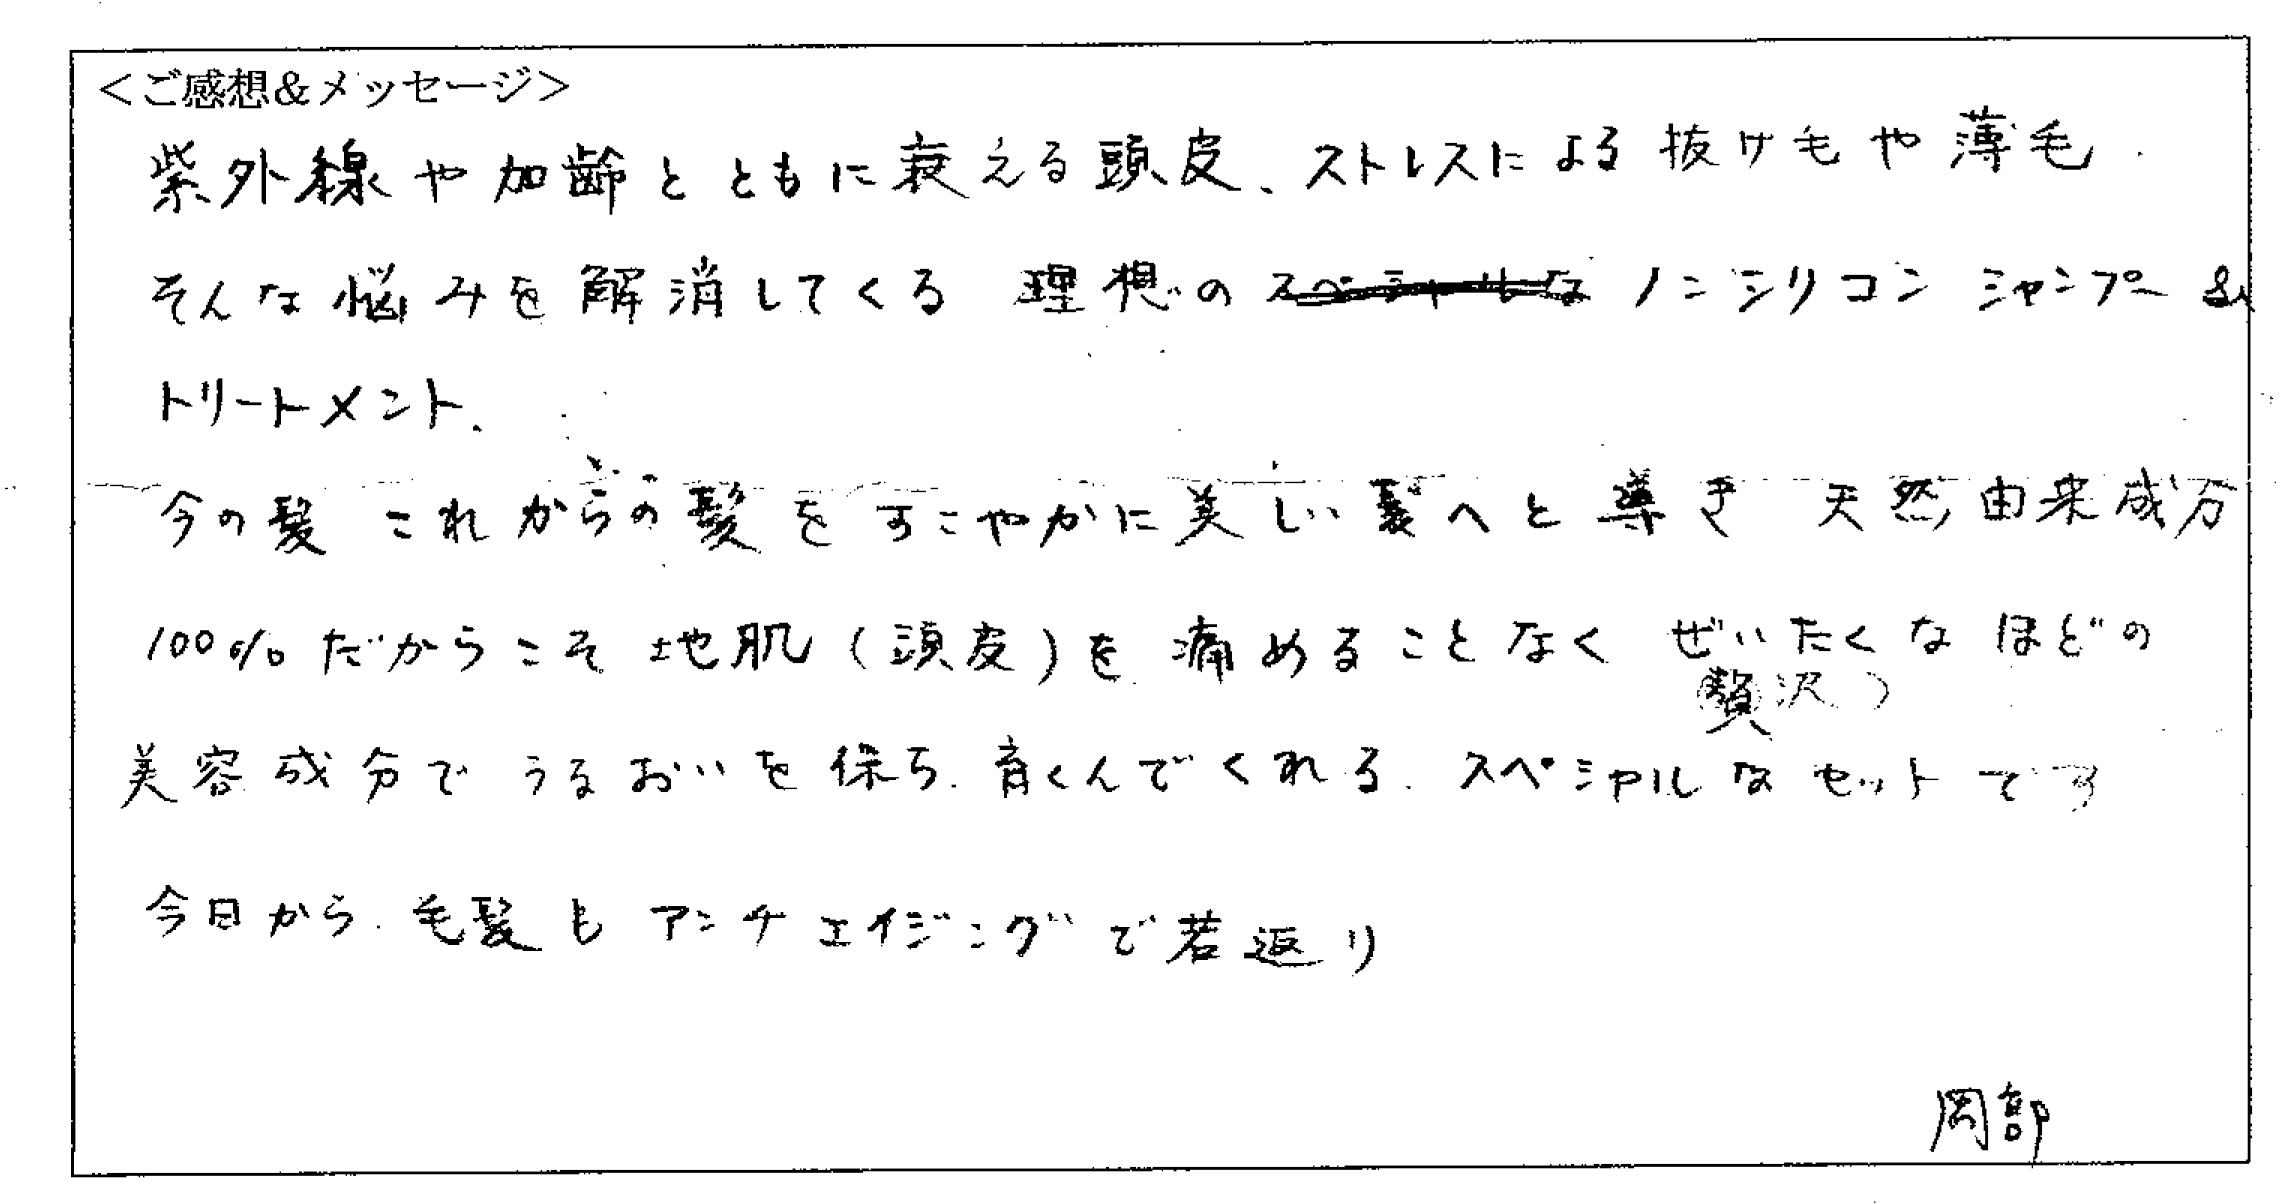 ＜ご感想＆メッセージ＞
紫外線や加齢とともに衰える頭皮、ストレスによる抜け毛や薄毛.
そんな悩みを解消してくる 理想の スペシャルな ノンシリコン シャンプー &
トリートメント、
今の髪 これからの髪を すこやかに美しい髪へと導き 天然由来成分
100%だからこそ 地肌(頭皮)を 痛めることなく ぜいたくなほどの
(贅沢)
美容成分で うるおいを保ち. 育くんでくれる. スペシャルなセットです
今日から. 毛髪も アンチエイジングで若返り
岡部